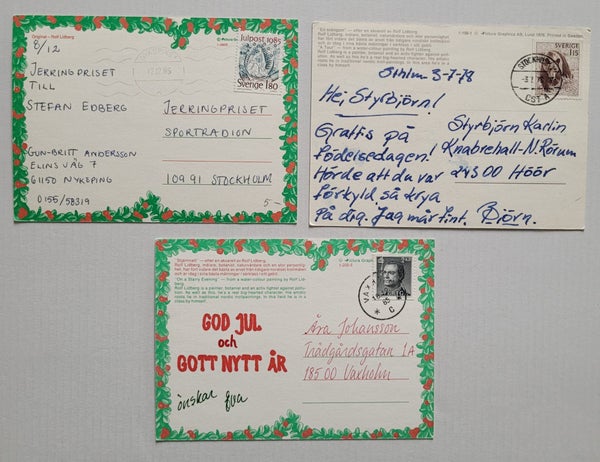 Original - Rolf Lidberg
© Picture Graphica
8/12
Julpost 1985
Sverige 1.80
JERRINGPRISET
TILL
STEFAN EDBERG
GUN-BRITT ANDERSSON
ELINS VÄG 7
61150 NYKÖPING
0155/58319
JERRINGPRISET
SPORTRADION
109 91 STOCKHOLM
5-
© Picture Graphica AB, Lund 1978. Printed in Sweden.
SVERIGE 115
STOCKHOLM
CST A
Sthlm 3-7-78
Hej, Styrbjörn!
Grattis på
födelsedagen!
Hörde att du var
förkyld, så krya
på dig. Jag mår fint. Björn.
Styrbjörn Karlin
Knabrehall-N. Rörum
243 00 Höör
"Stjärnnatt" – efter en akvarell av Rolf Lidberg.
"On a Starry Evening" – from a water-colour painting by Rolf Lidberg.
GOD JUL
och
GOTT NYTT ÅR
önskar Eva
Åra Johansson
Trädgårdsgatan 1A
185 00 Vaxholm